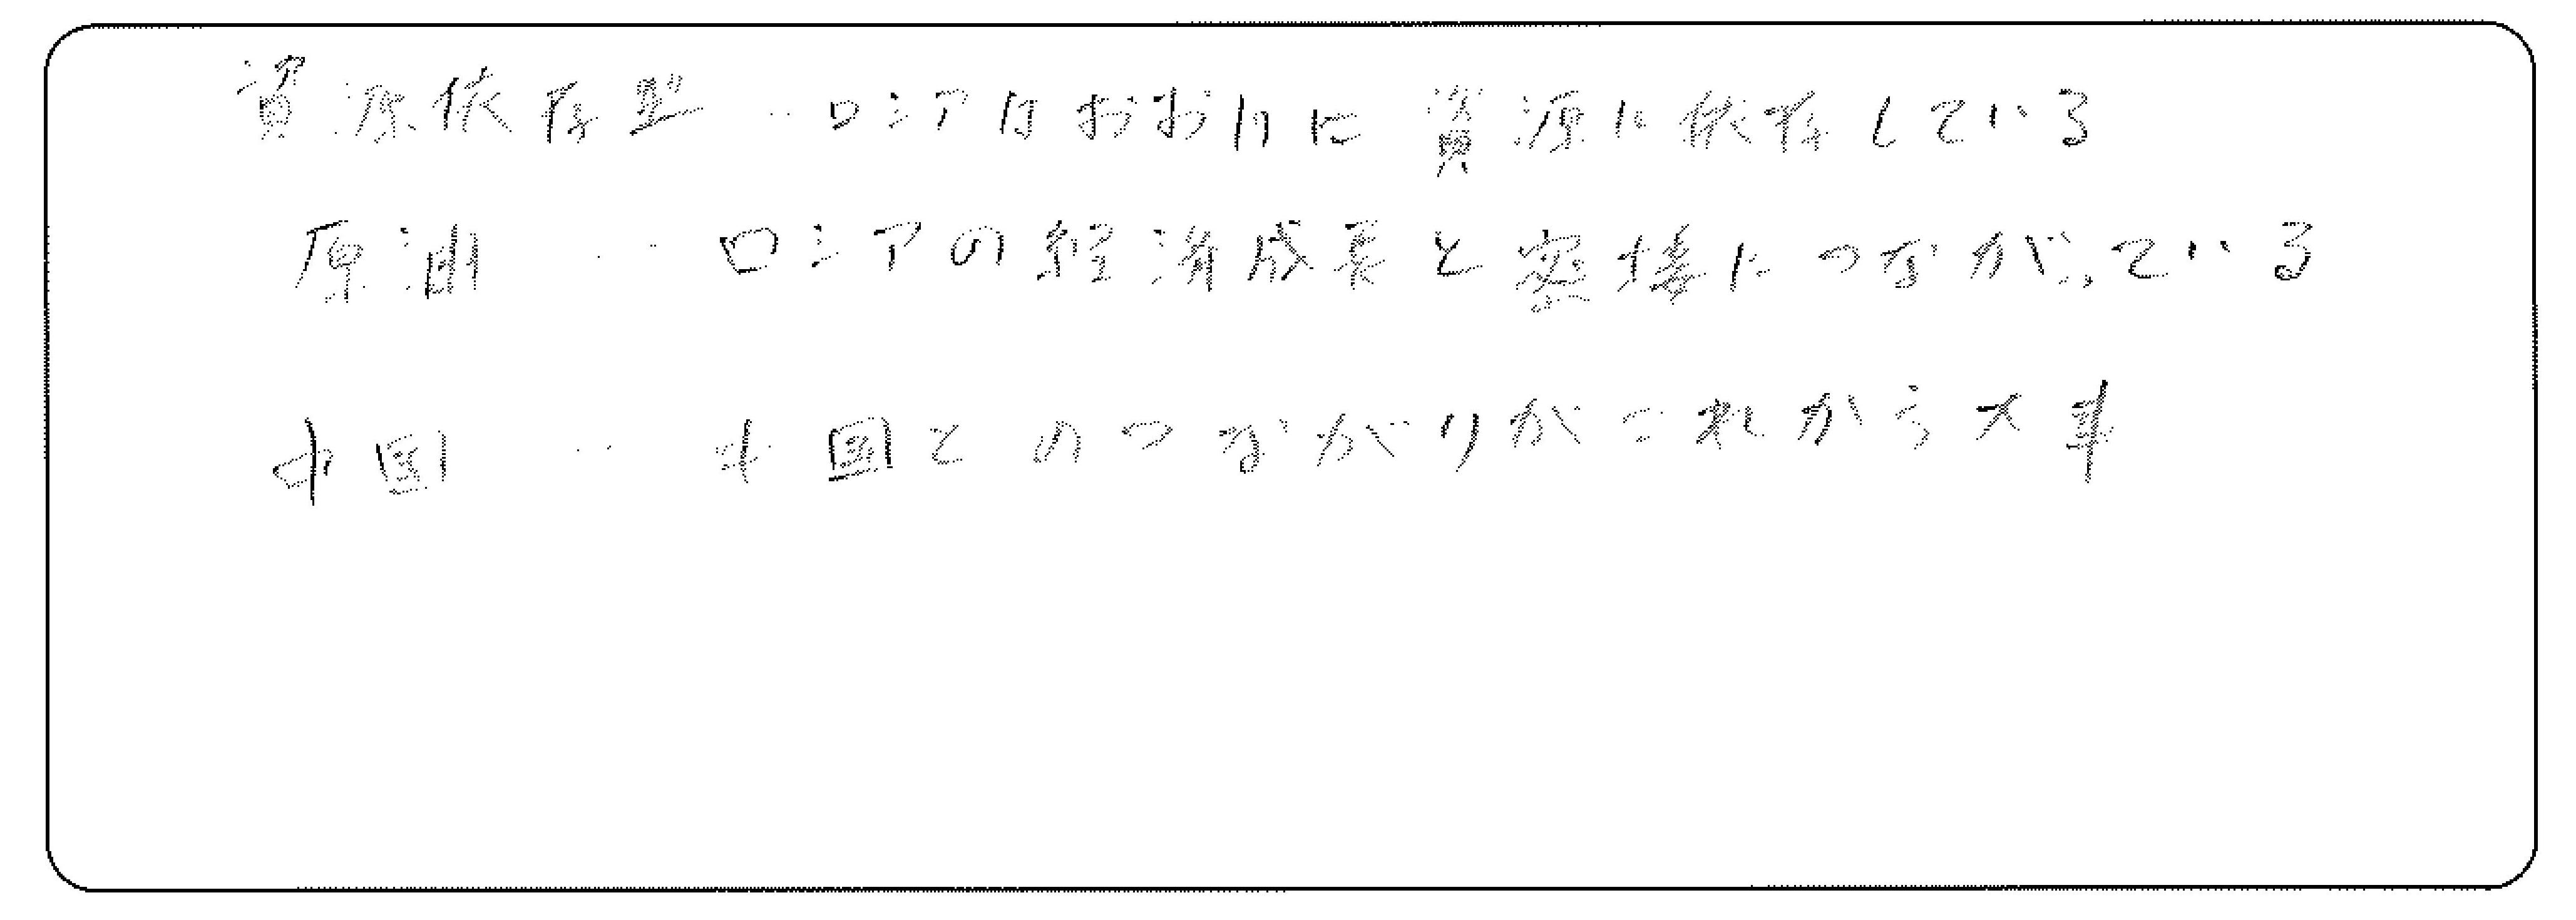 資源依存型 ‥ ロシアはおおいに資源に依存している
原油 ‥ ロシアの経済成長と密接につながっている
中国 ‥ 中国とのつながりがこれから大事